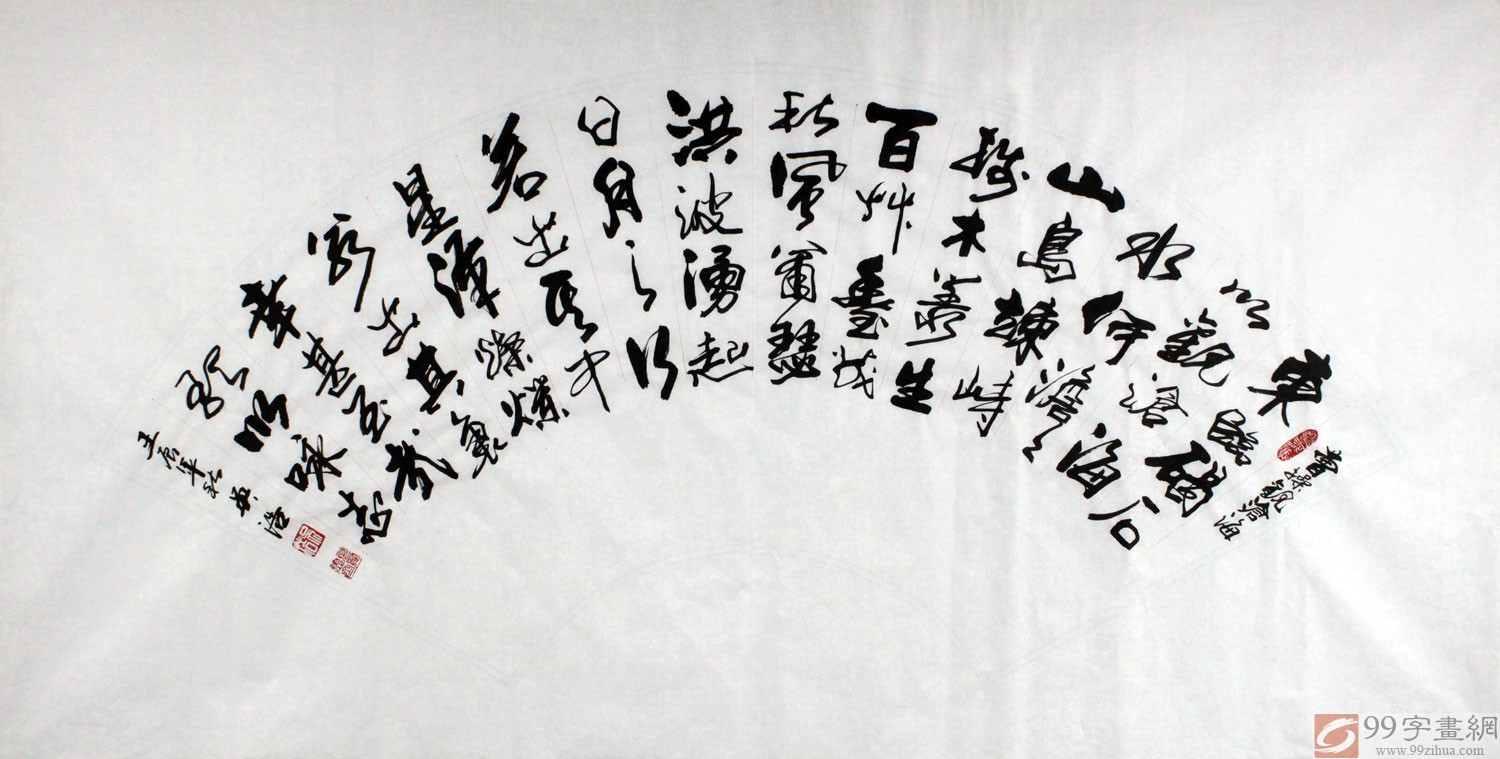 曹操觀滄海
東臨碣石
以觀滄海
水何澹〻
山島竦峙
樹木叢生
百艸豐茂
秋風蕭瑟
洪波湧起
日月之行
若出其中
星漢燦爛
若出其裏
幸甚至哉
歌以詠志
壬辰年秋吳浩
99字畫網
www.99zihua.com